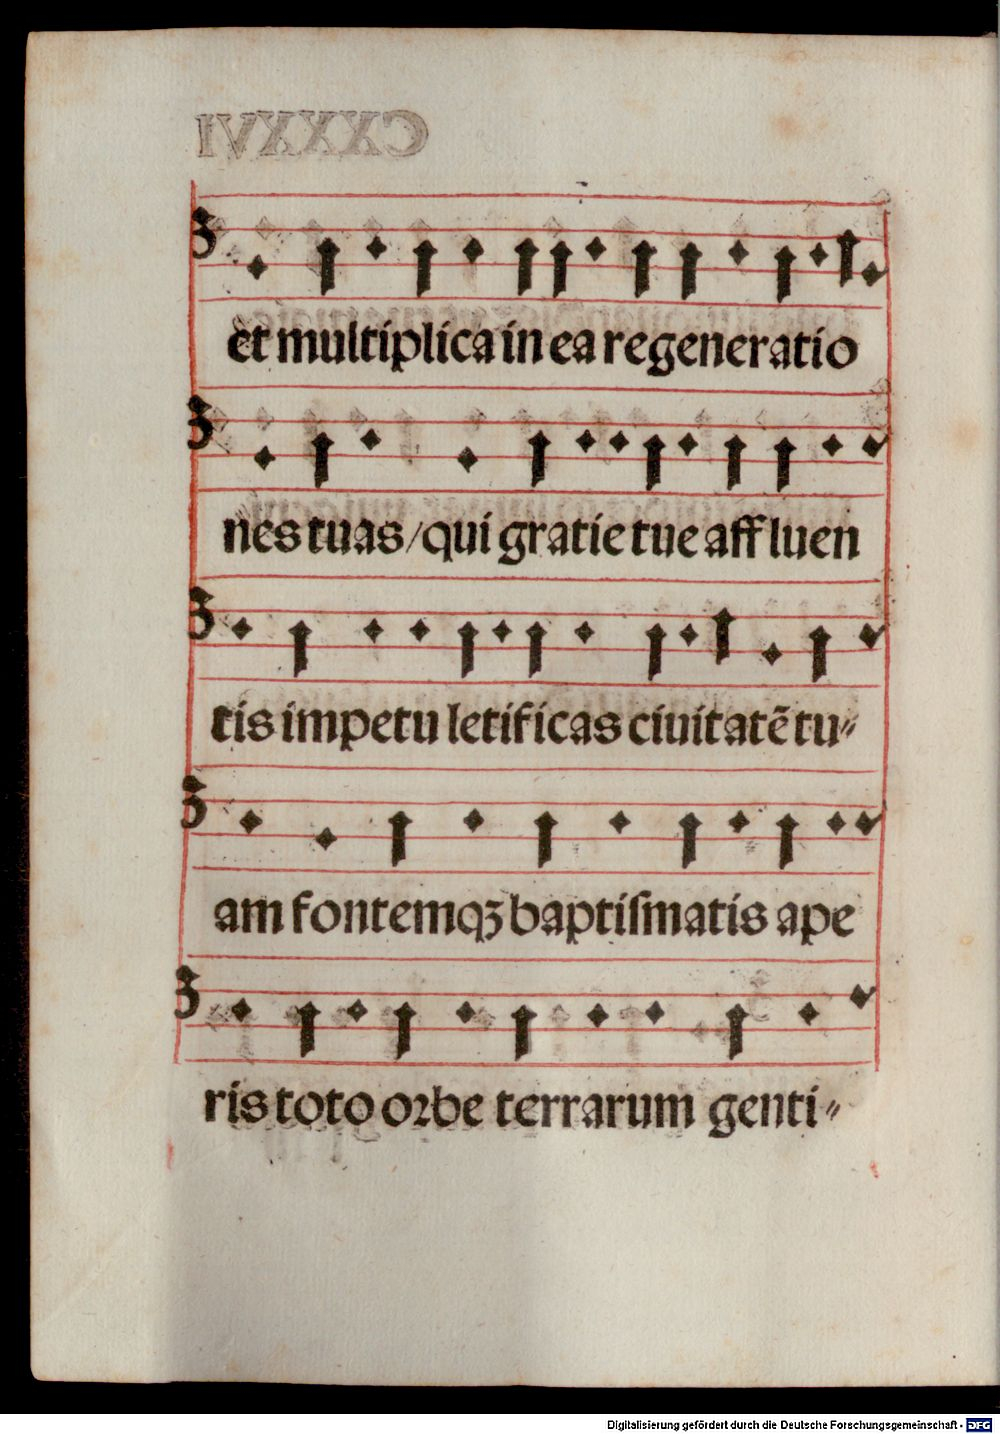 et multiplica in ea regeneratio
nes tuas/qui gratie tue affluen
tis impetu letificas ciuitatē tu〃
am fontemqꝫ baptiſmatis ape
ris toto oꝛbe terrarum genti〃
Digitalisierung gefördert durch die Deutsche Forschungsgemeinschaft - DFG